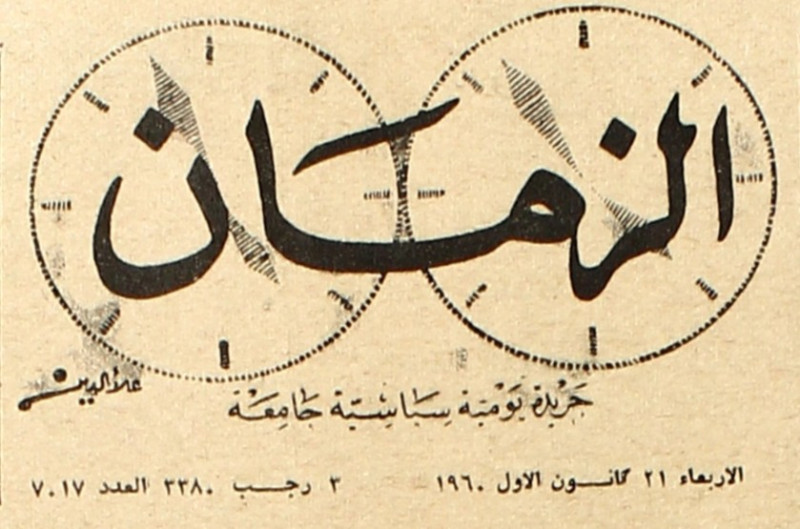 الزمان
جريدة يومية سياسية جامعة
علاءالدين
الاربعاء ٢١ كانون الاول ١٩٦٠ ٣ رجب ٣٣٨٠ العدد ٧٠١٧